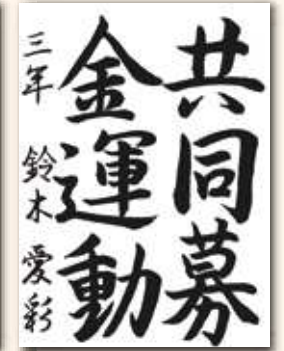 共同募
金運動
三年 鈴木愛彩